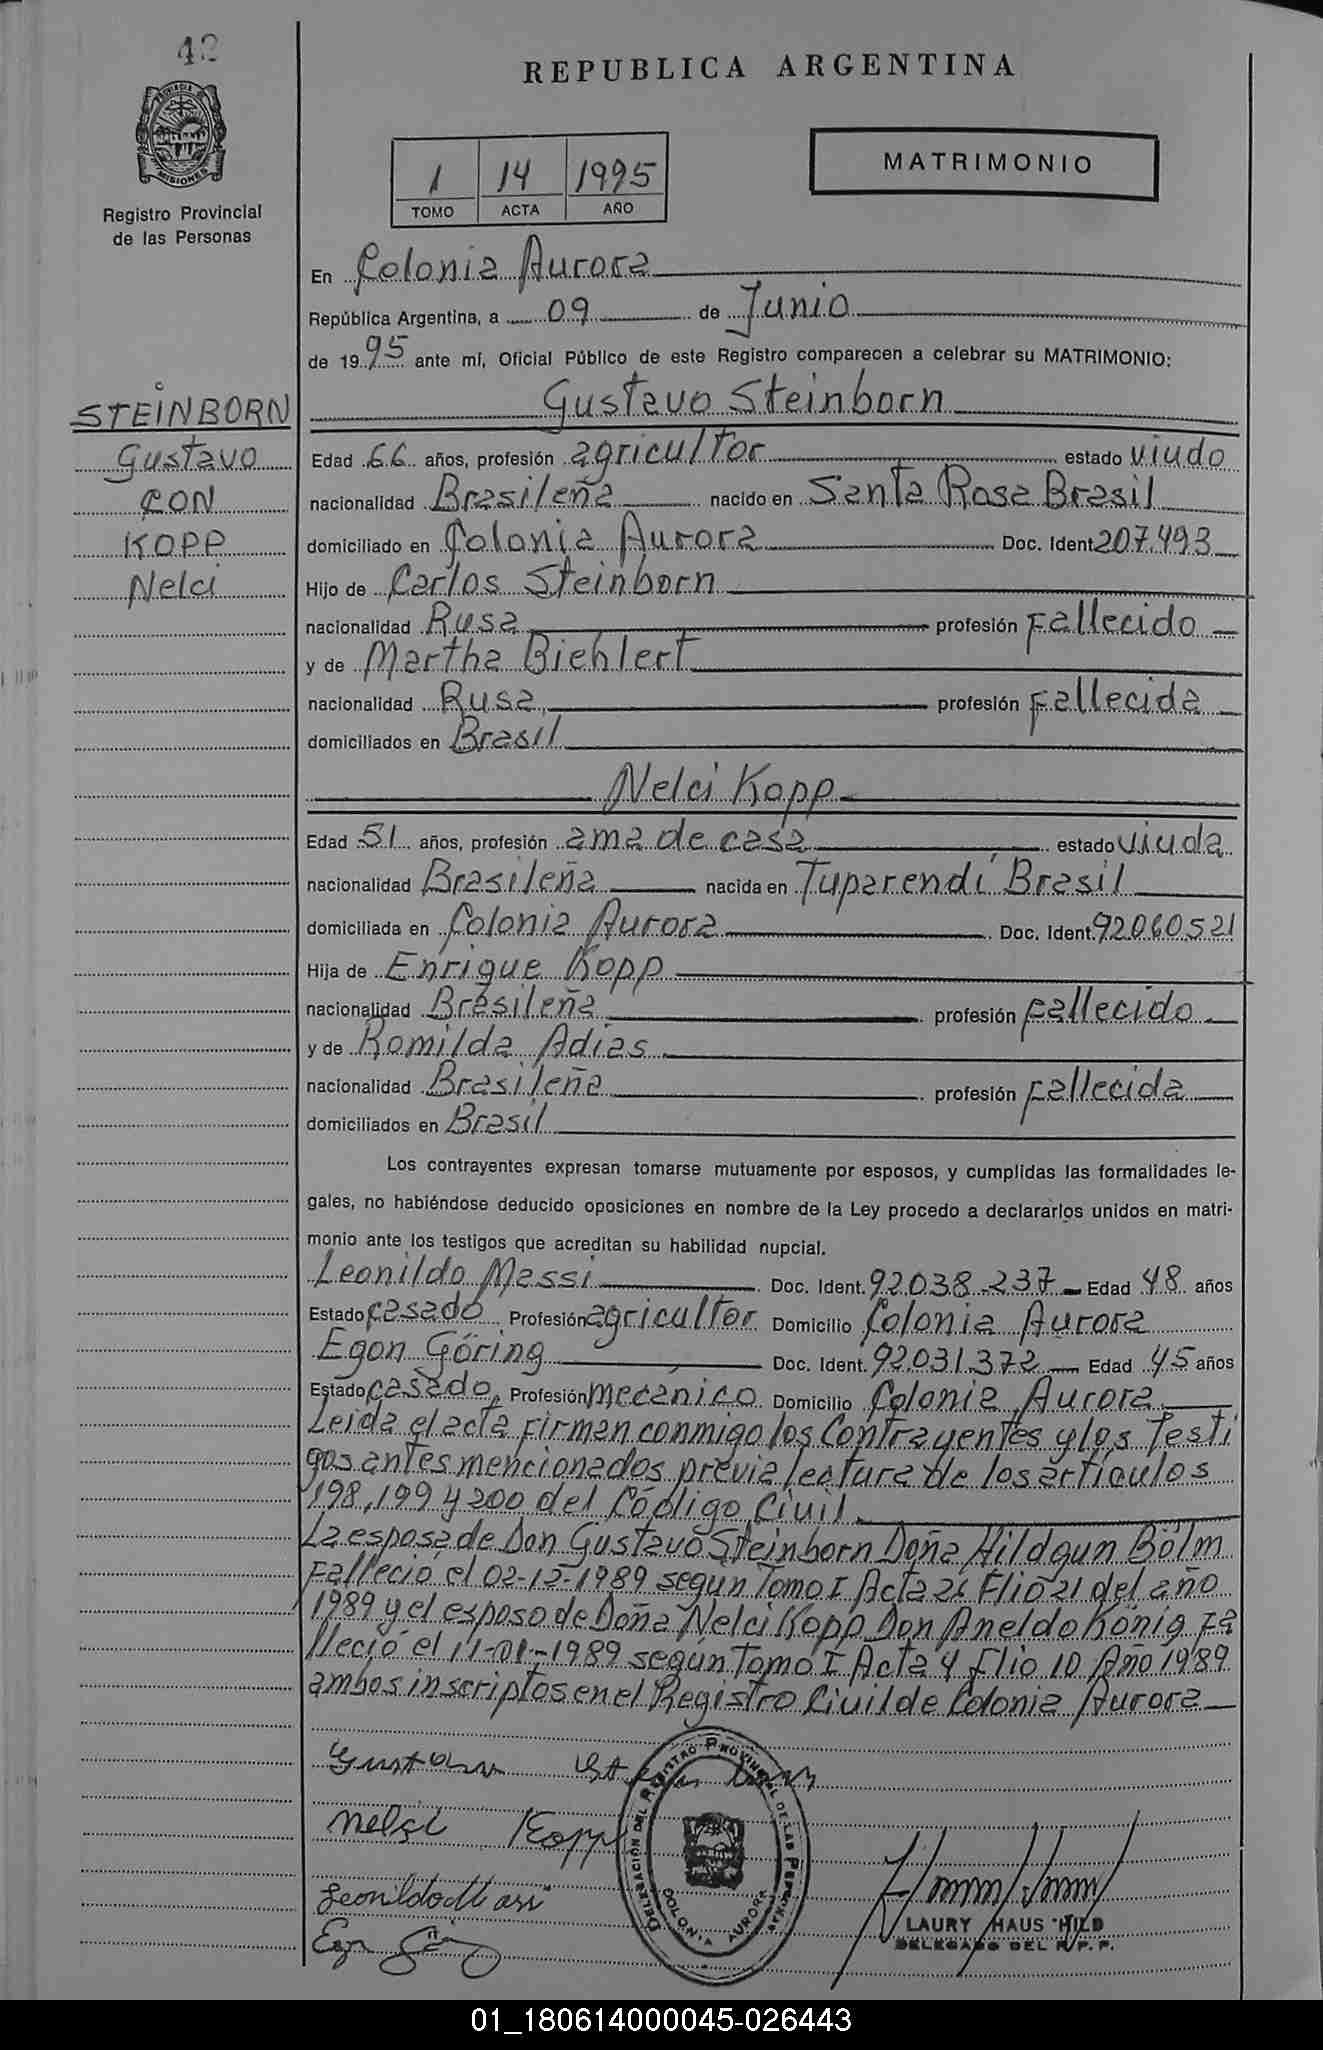 42
REPUBLICA ARGENTINA
MISIONES
Registro Provincial
de las Personas
1 14 1995
TOMO ACTA AÑO
MATRIMONIO
En Colonia Aurora
República Argentina, a 09 de Junio
de 1995 ante mí, Oficial Público de este Registro comparecen a celebrar su MATRIMONIO:
STEINBORN
Gustavo
CON
KOPP
Nelci
Gustavo Steinborn
Edad 66 años, profesión agricultor estado viudo
nacionalidad Brasileña nacido en Santa Rosa Brasil
domiciliado en Colonia Aurora Doc. Ident. 207.493
Hijo de Carlos Steinborn
nacionalidad Rusa profesión Fallecido
y de Martha Biehlert
nacionalidad Rusa profesión Fallecida
domiciliados en Brasil
Nelci Kopp
Edad 51 años, profesión ama de casa estado viuda
nacionalidad Brasileña nacida en Tuparendí Brasil
domiciliada en Colonia Aurora Doc. Ident. 92060521
Hija de Enrique Kopp
nacionalidad Brasileña profesión Fallecido
y de Romilda Adias
nacionalidad Brasileña profesión Fallecida
domiciliados en Brasil
Los contrayentes expresan tomarse mutuamente por esposos, y cumplidas las formalidades le-
gales, no habiéndose deducido oposiciones en nombre de la Ley procedo a declararlos unidos en matri-
monio ante los testigos que acreditan su habilidad nupcial.
Leonildo Massi Doc. Ident. 92.038.237 Edad 48 años
Estado casado Profesión agricultor Domicilio Colonia Aurora
Egon Göring Doc. Ident. 92.031.372 Edad 45 años
Estado casado Profesión mecánico Domicilio Colonia Aurora
Leida el acta firman conmigo los Contrayentes y los Testi
gos antes mencionados previa lectura de los artículos
198, 199 y 200 del Código Civil
La esposa de Don Gustavo Steinborn Doña Hildgun Bölm
Falleció el 02-12-1989 según Tomo I Acta 26 Flio 21 del año
1989 y el esposo de Doña Nelci Kopp Don Aneldo König Fa
lleció el 11-01-1989 según Tomo I Acta 4 Flio 10 Año 1989
ambos inscriptos en el Registro Civil de Colonia Aurora
Gustavo
Nelci Kopp
Leonildo Massi
DELEGACIÓN DEL REGISTRO PROVINCIAL DE LAS PERSONAS
COLONIA AURORA
LAURY HAUS HILD
DELEGADO DEL R.P.P.
01_180614000045-026443